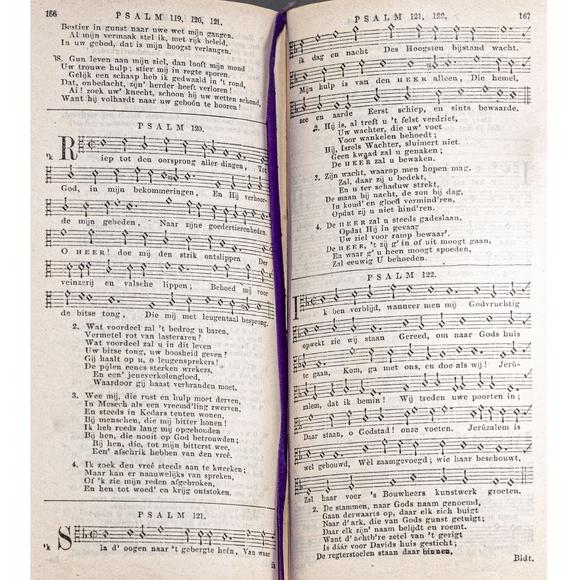 166 PSALM 119, 120, 121.
Bestier in gunst naar uwe wet mijn gangen.
Al mijn vermaak stel ik, met rijk beleid,
In uw gebod, dat is mijn hoogst verlangen.
18. Gun leven aan mijn ziel, dan looft mijn mond
Uw trouwe hulp; stier mij in regte sporen.
Gelijk een schaap heb ik gedwaald in 't rond,
Dat, onbedacht, zijn' herder heeft verloren!
Ai! zoek uw' knecht, schoon hij uw wetten schond,
Want hij volhardt naar uw geboôn te hooren!
PSALM 120.
'k Riep tot den oorsprong aller dingen, Tot
God, in mijn bekommeringen, En Hij verhoor-
de mijn gebeden, Naar zijne goedertierenheden.
O HEER! doe mij den strik ontslippen Der
veinzerij en valsche lippen; Behoed mij voor
de bitse tong, Die mij met leugentaal besprong.
2. Wat voordeel zal 't bedrog u baren,
Vermetel rot van lasteraren?
Wat voordeel zal u in dit leven
Uw bitse tong, uw boosheid geven?
Gij haalt op u, o leugensprekers!
De pijlen eens sterken wrekers,
En een' jeneverkolengloed,
Waardoor gij haast verbranden moet.
3. Wee mij, die rust en hulp moet derven,
In Mesech als een vreemd'ling zwerven,
En steeds in Kedars tenten wonen,
Bij menschen, die mij bitter honen!
Ik heb reeds lang mij opgehouden
Bij hen, die nooit op God betrouwden;
Bij hen, die, tot mijn bitterst wee,
Een' afschrik hebben van den vreê.
4. Ik zoek den vreê steeds aan te kweeken;
Maar kan er naauwelijks van spreken,
Of 'k zie mijn reden afgebroken,
En hen tot woed' en krijg ontstoken.
PSALM 121.
'k Sla d' oogen naar 't gebergte heen, Van waar
PSALM 121, 122. 167
ik dag en nacht Des Hoogsten bijstand wacht.
Mijn hulp is van den HEER alleen, Die hemel,
zee en aarde Eerst schiep, en sints bewaarde.
2. Hij is, al treft u 't felst verdriet,
Uw wachter, die uw' voet
Voor wankelen behoedt;
Hij, Isrels Wachter, sluimert niet.
Geen kwaad zal u genaken;
De HEER zal u bewaken.
3. Zijn wacht, waarop men hopen mag.
Zal, daar zij u bedekt,
En u ter schaduw strekt,
De maan bij nacht, de zon bij dag,
In koud' en gloed vermind'ren,
Opdat zij u niet hind'ren.
4. De HEER zal u steeds gadeslaan,
Opdat Hij in gevaar
Uw ziel voor ramp bewaar'.
De HEER, 't zij g' in of uit moogt gaan,
En waar g' u heen moogt spoeden,
Zal eeuwig U behoeden.
PSALM 122.
Ik ben verblijd, wanneer men mij Godvruchtig
opwekt zie wij staan Gereed, om naar Gods huis
te gaan, Kom, ga met ons, en doe als wij! Jerû-
zalem, dat ik bemin! Wij treden uwe poorten in;
Daar staan, o Godstad! onze voeten. Jerûzalem is
wel gebouwd, Wèl zaamgevoegd; wie haar beschouwt,
Zal haar voor 's Bouwheers kunstwerk groeten.
2. De stammen, naar Gods naam genoemd,
Gaan derwaarts op, daar elk zich buigt
Naar d' ark, die van Gods gunst getuigt;
Daar elk zijn' naam belijdt en roemt.
Want d' achtb're zetel van 't gerigt
Is dáár voor Davids huis gesticht;
De regterstoelen staan daar binnen,
Bidt.